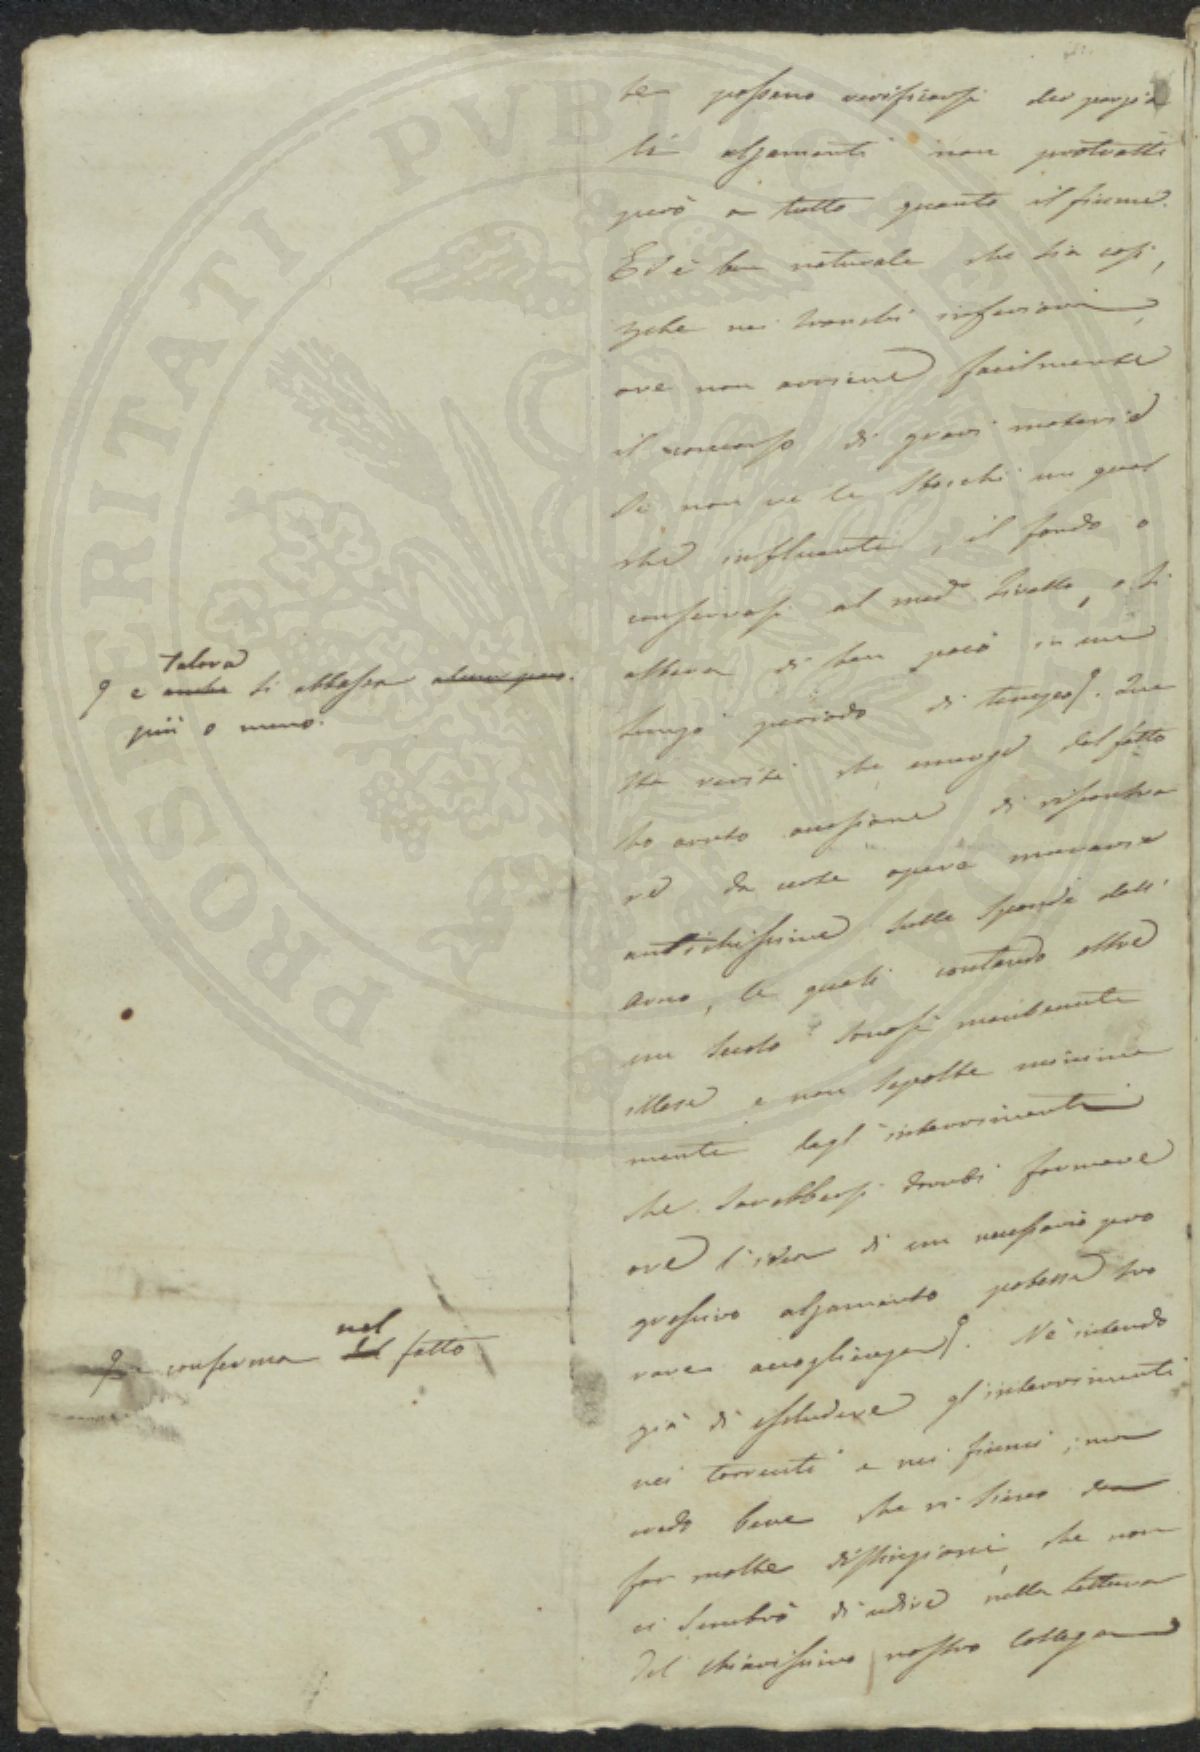 PROSPERITATI PVBLICAE
te possono verificarsi dei parzia
li alzamenti non protratti
però a tutto quanto il fiume.
Ed è ben naturale che sia così,
che nei tronchi inferiori,
ove non avviene facilmente
il concorso di gravi materie
se non ve le sbocchi un qual
che influente, il fondo o
conservasi al med.o livello, o si
altera di ben poco in un
lungo periodo di tempo. Que
sta verità che emerge dal fatto
ho avuto occasione di riscontra
re da certe opere murarie
antichissime sulle sponde dell'
Arno, le quali contando oltre
un secolo sonosi mantenute
illese e non sepolte minima
mente dagl'interrimenti
che sarebbersi dovuti formare
ove l'idea di un necessario pro
gressivo alzamento potesse tro
vare accoglienza. Nè intendo
già di escludere gl'interrimenti
nei torrenti e nei fiumi; ma
credo bene che vi sieno da
far molte distinzioni, che non
ci sembrò di udire nella lettura
del chiarissimo nostro Collega
Talora
e anche si abbassa alcun poco.
più o meno.
e conferma nel
del fatto